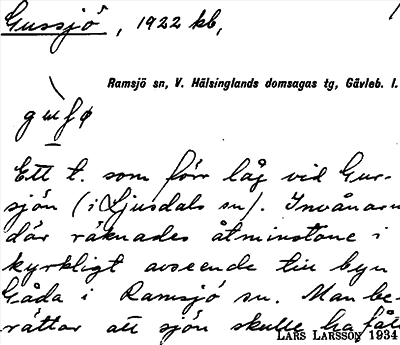 Gussjö, 1922 kb,
Ramsjö sn, V. Hälsinglands domsagas tg, Gävleb. l.
Ett t. som förr låg vid Gus-
sjön (i Ljusdals sn). Invånarn
där räknades åtminstone i
kyrkligt avseende till byn
Gåda i Ramsjö sn. Man be-
rättar att sjön skulle ha fått
LARS LARSSON 1934